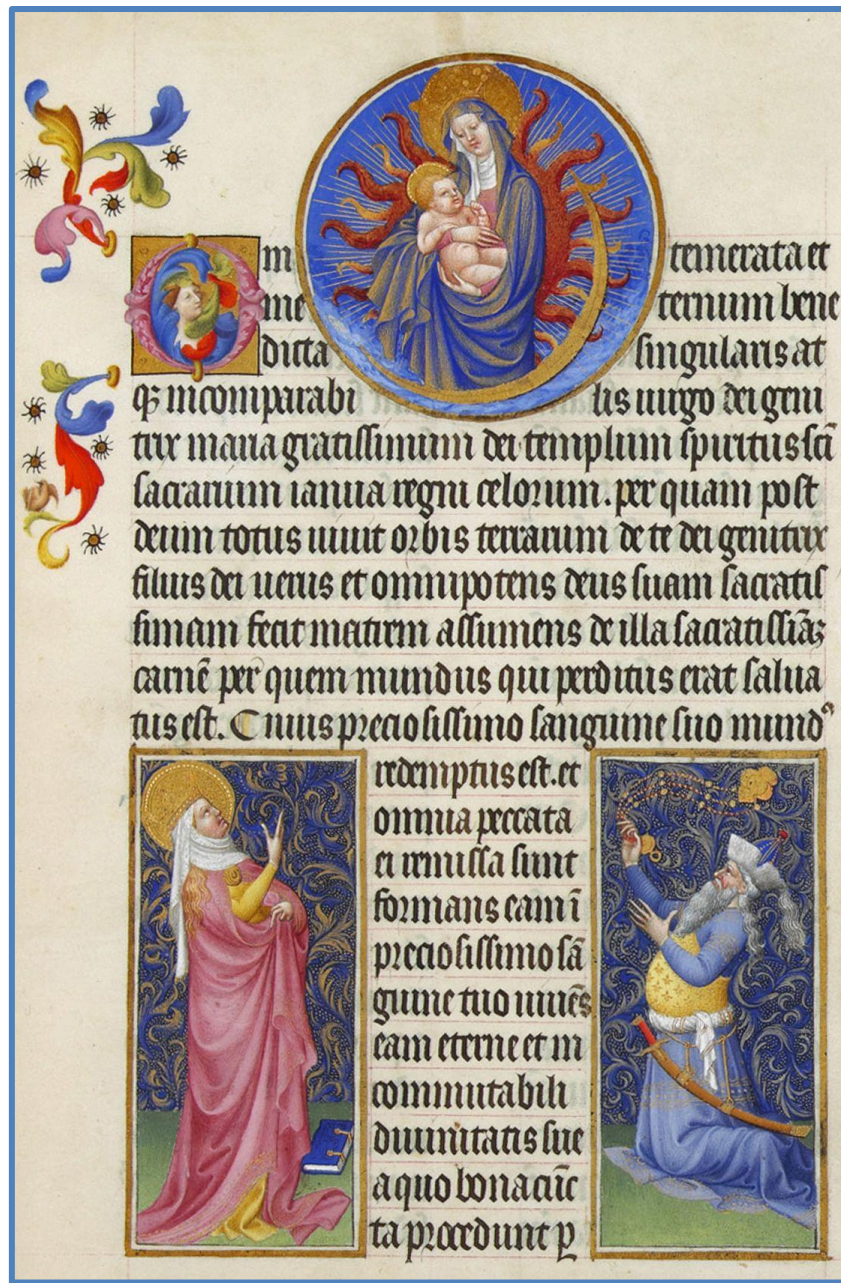 O in temerata et
ine ternum bene
dicta singularis at
qꝫ incomparabi lis uirgo dei geni
trix maria gratissimum dei templum spiritus scī
sacrarium ianua regni celorum. per quam post
deum totus uiuit orbis terrarum de te dei genitrix
filius dei uerus et omnipotens deus suam sacratis
simam fecit matrem assumens de illa sacratissīaꝫ
carnē per quem mundus qui perditus erat salua
tus est. Cuius preciosissimo sanguine suo mundꝰ
redemptus est. et
omnia peccata
ei remissa sunt
formans eam ī
preciosissimo sā
guine tuo uiuēs
eam eterne et in
commutabili
diuinitatis sue
a quo bona cūc
ta procedunt ꝑ